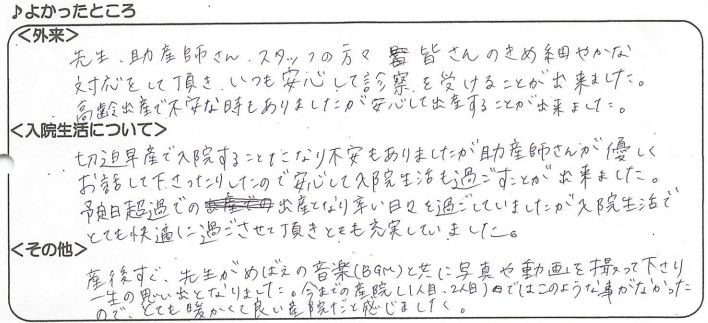 ♪よかったところ
<外来>
先生、助産師さん、スタッフの方々 皆さんのきめ細やかな
対応をして頂き、いつも安心して診察を受けることが出来ました。
高齢出産で不安な時もありましたが安心して出産することが出来ました。
<入院生活について>
切迫早産で入院することになり不安もありましたが助産師さんが優しく
お話して下さったりしたので安心して入院生活も過ごすことが出来ました。
予定日超過での出産となり辛い日々を過ごしていましたが入院生活で
とても快適に過ごさせて頂きとても充実していました。
<その他>
産後すぐ、先生がめばえの音楽(BGM)と共に写真や動画を撮って下さり
一生の思い出となりました。今までの産院(1人目、2人目)ではこのような事がなかった
ので、とても暖かくて良い産院だと感じました。